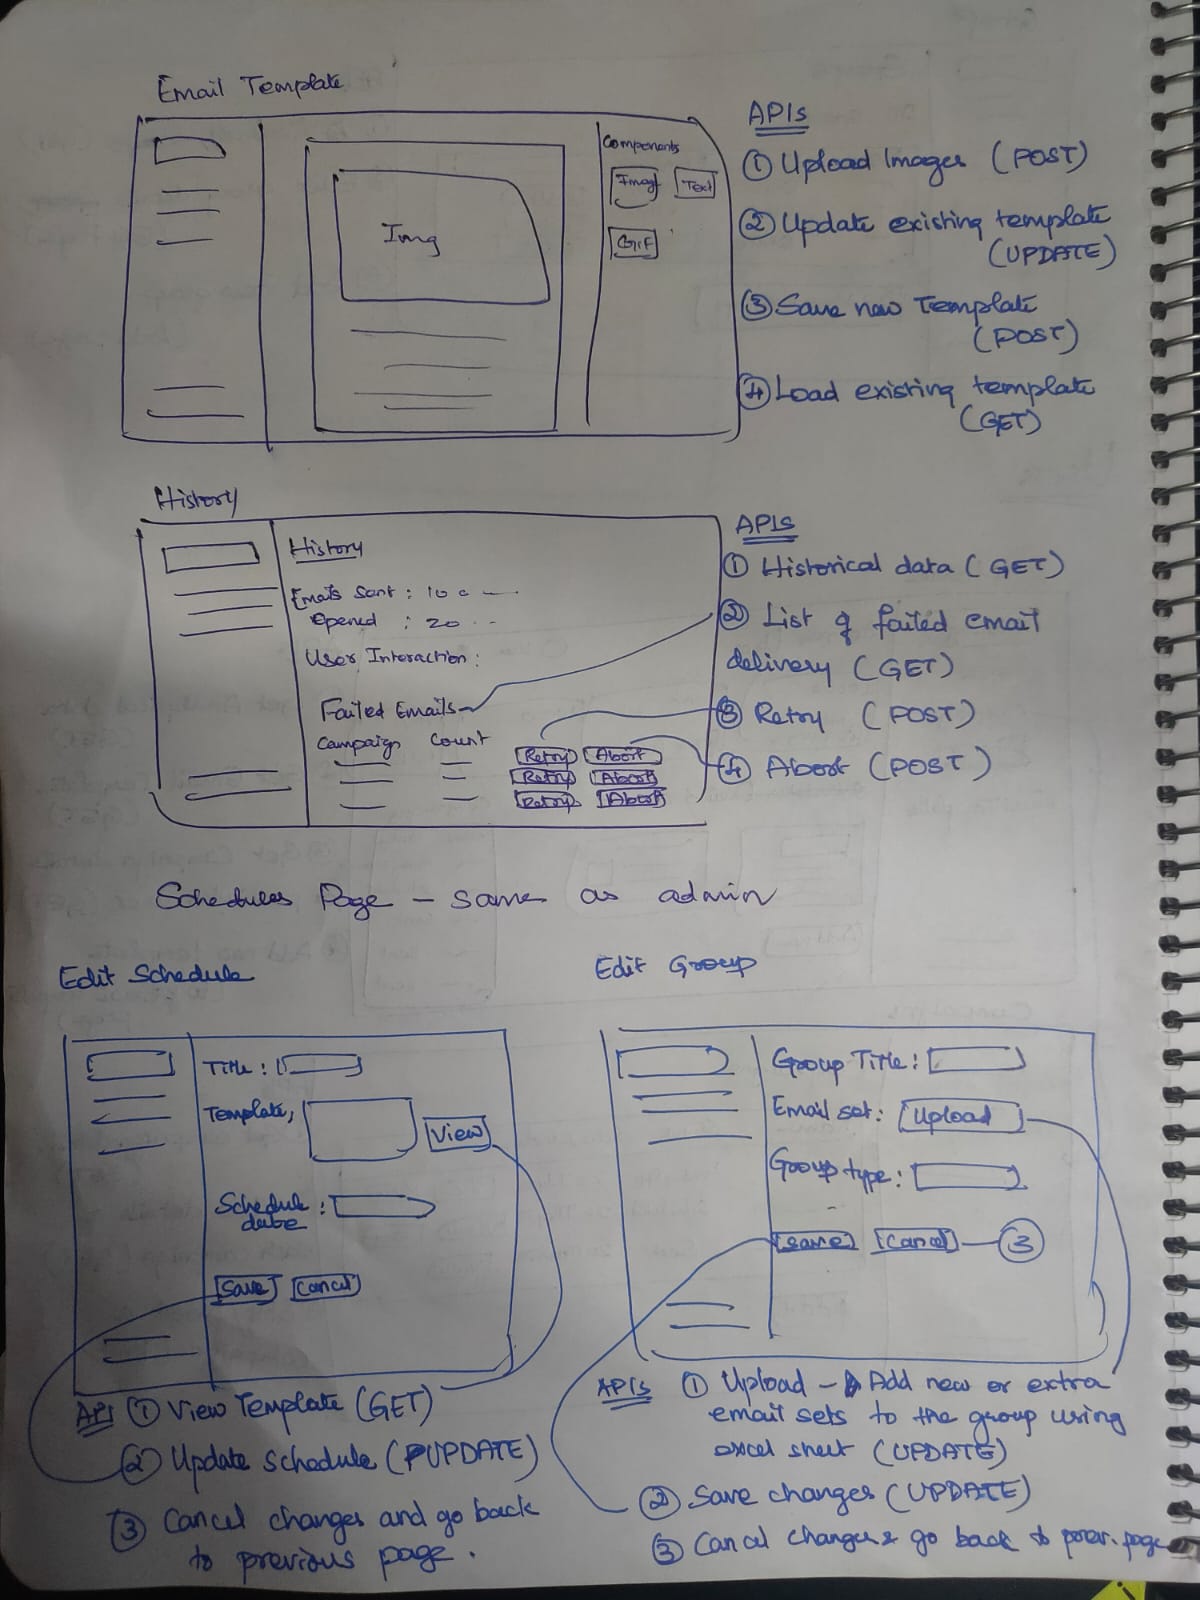 Email Template
Components
Image Text
GIF
Img
APIs
① Upload Images (POST)
② Update existing template
(UPDATE)
③ Save new Template
(POST)
④ Load existing template
(GET)
History
History
Emails Sent : 100
Opened : 20
User Interaction :
Failed Emails
Campaign Count
Retry Abort
Retry Abort
Retry Abort
APIs
① Historical data (GET)
② List of failed email
delivery (GET)
③ Retry (POST)
④ Abort (POST)
Schedules Page - same as admin
Edit Schedule
Title :
Template,
View
Schedule :
date
Save Cancel
API ① View Template (GET)
② Update schedule (PUPDATE)
③ Cancel changes and go back
to previous page.
Edit Group
Group Title :
Email set : Upload
Group type :
Save Cancel ③
APIs ① Upload - Add new or extra
email sets to the group using
excel sheet (UPDATE)
② Save changes (UPDATE)
③ Cancel changes & go back to prev. page